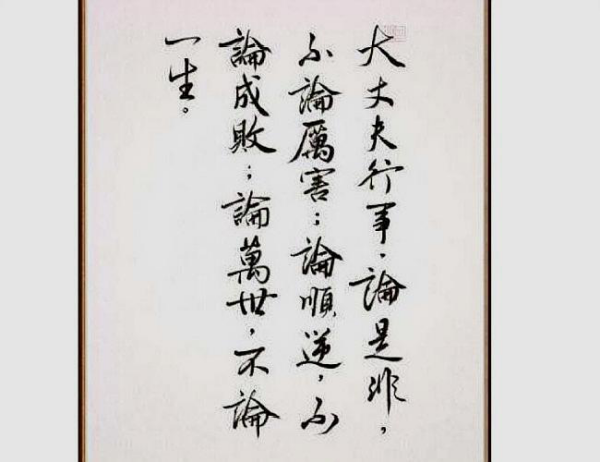 大丈夫行事，論是非，
不論厲害；論順逆，不
論成敗；論萬世，不論
一生。